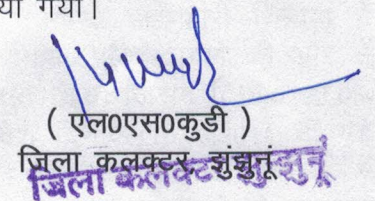 या गया।
( एल0एस0कुडी )
जिला कलक्टर, झुंझुनूं
जिला कलक्टर झुंझुनूं